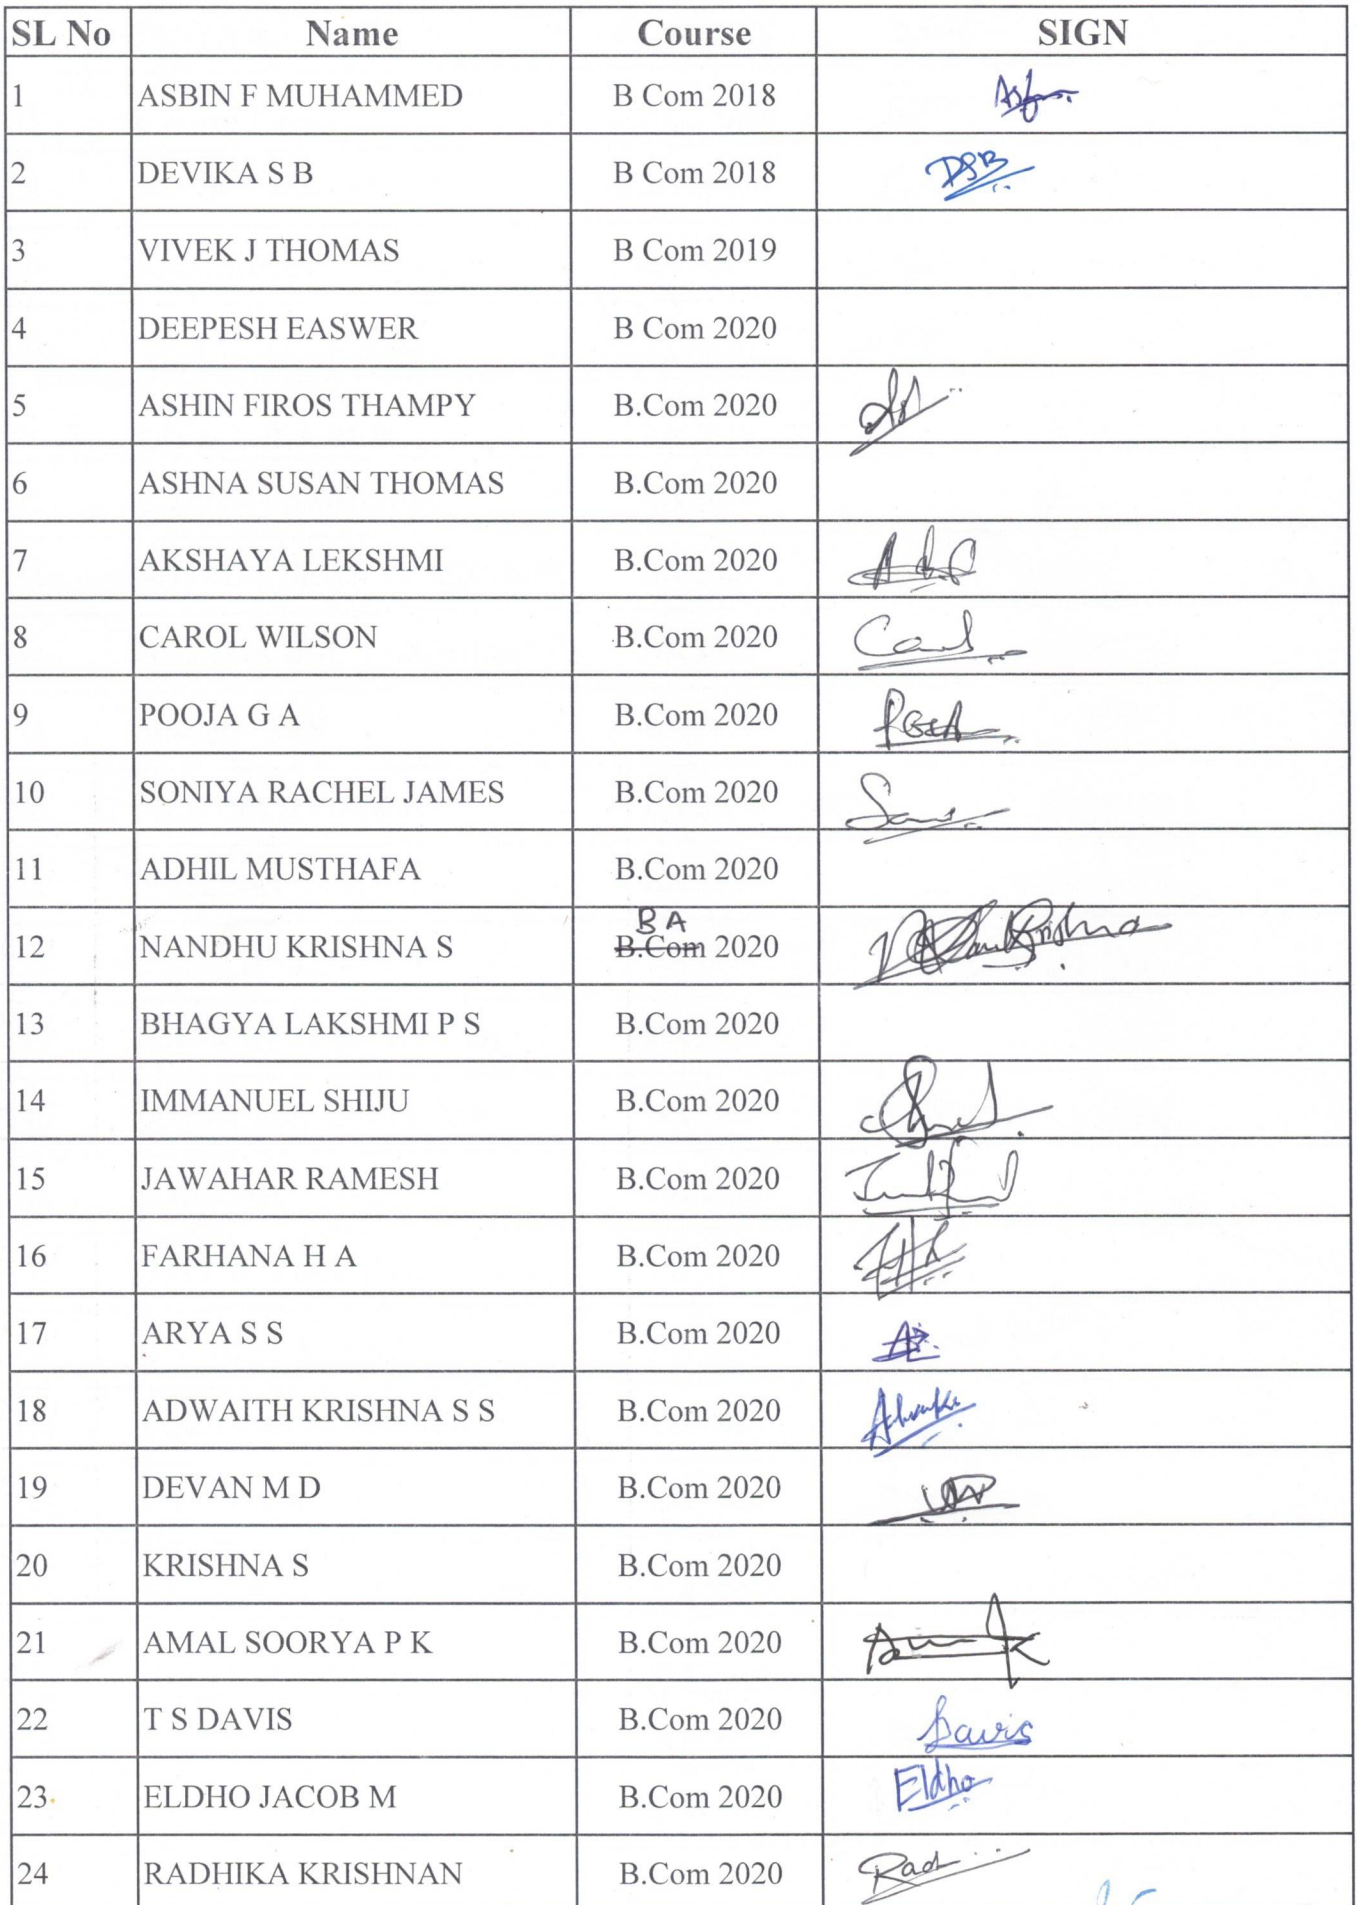 SL No Name Course SIGN
1 ASBIN F MUHAMMED B Com 2018
2 DEVIKA S B B Com 2018 DSB
3 VIVEK J THOMAS B Com 2019
4 DEEPESH EASWER B Com 2020
5 ASHIN FIROS THAMPY B.Com 2020
6 ASHNA SUSAN THOMAS B.Com 2020
7 AKSHAYA LEKSHMI B.Com 2020
8 CAROL WILSON B.Com 2020
9 POOJA G A B.Com 2020
10 SONIYA RACHEL JAMES B.Com 2020
11 ADHIL MUSTHAFA B.Com 2020
B A
12 NANDHU KRISHNA S B.Com 2020
13 BHAGYA LAKSHMI P S B.Com 2020
14 IMMANUEL SHIJU B.Com 2020
15 JAWAHAR RAMESH B.Com 2020
16 FARHANA H A B.Com 2020
17 ARYA S S B.Com 2020
18 ADWAITH KRISHNA S S B.Com 2020
19 DEVAN M D B.Com 2020
20 KRISHNA S B.Com 2020
21 AMAL SOORYA P K B.Com 2020
22 T S DAVIS B.Com 2020 Davis
23 ELDHO JACOB M B.Com 2020 Eldho
24 RADHIKA KRISHNAN B.Com 2020